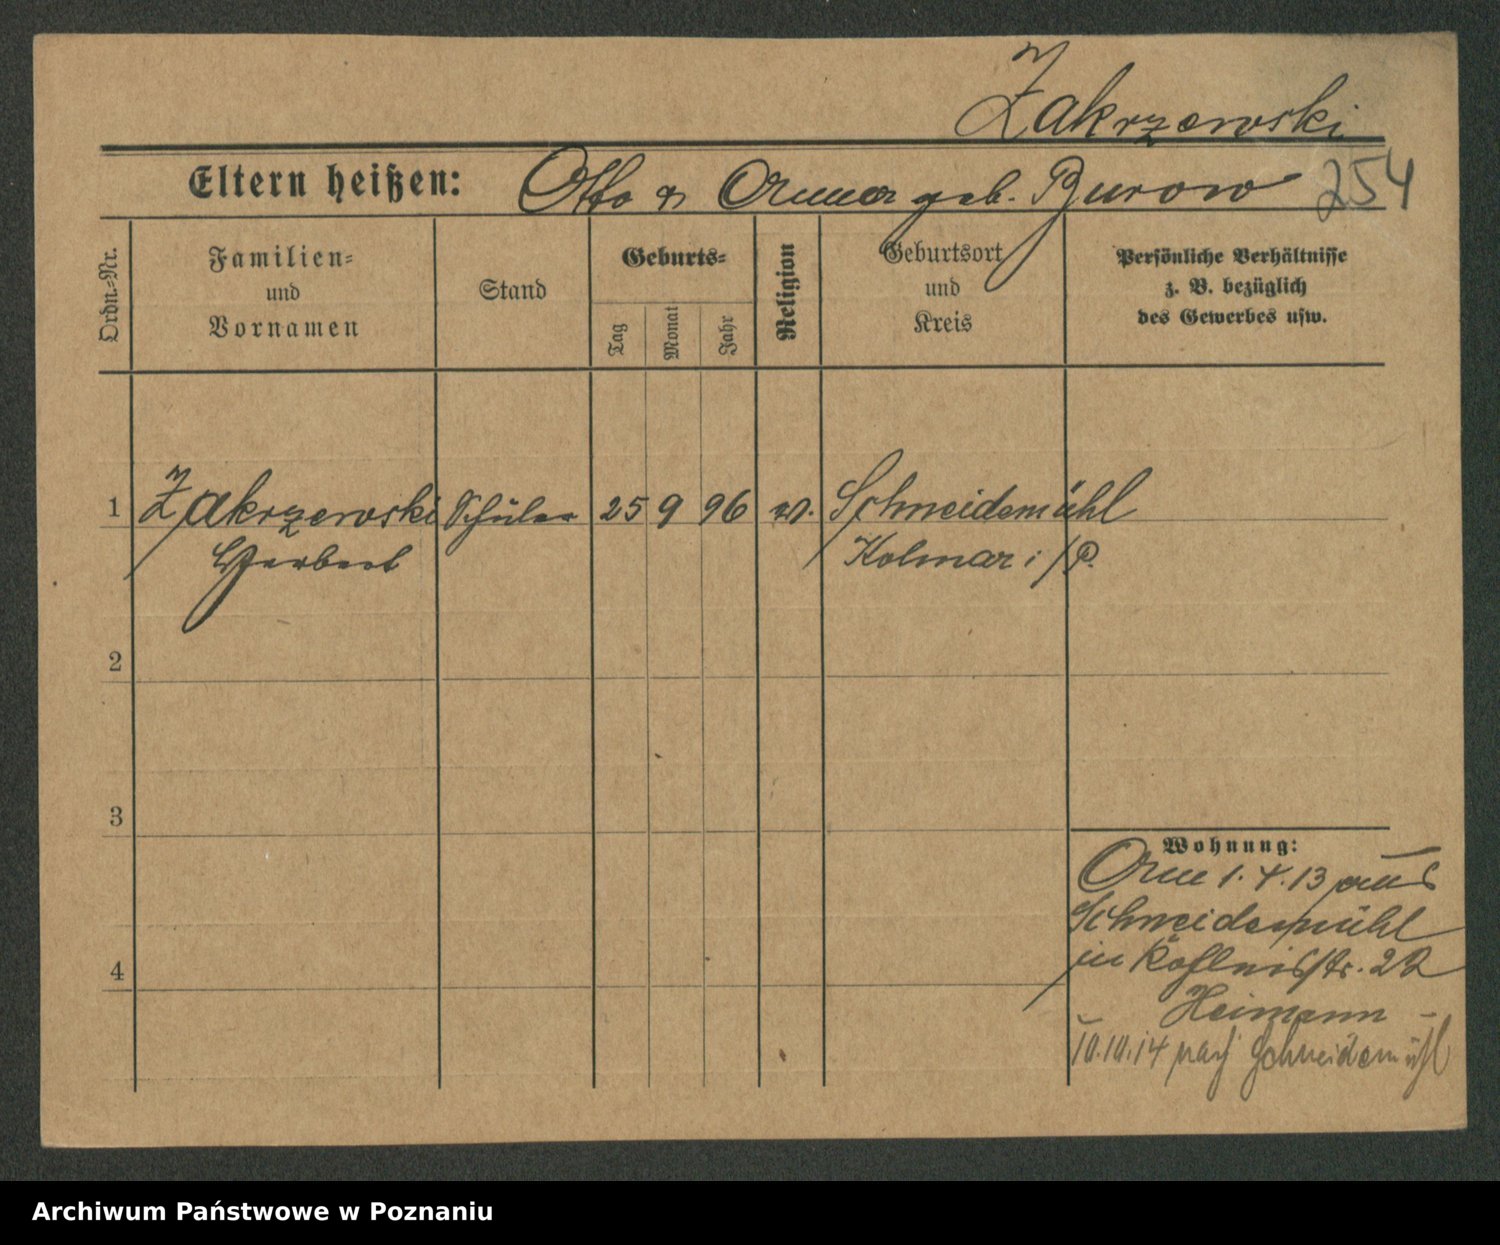 Zakrzewski
Eltern heißen: Otto u Anna geb. Burow 254
Ordn.-Nr.
Familien-
und
Vornamen
Stand
Geburts-
Tag
Monat
Jahr
Religion
Geburtsort
und
Kreis
Persönliche Verhältnisse
z. B. bezüglich
des Gewerbes usw.
1 Zakrzewski Schüler 25 9 96 ev. Schneidemühl
Herbert Kolmar i/P.
2
3
4
Wohnung:
Am 1.4.13 aus
Schneidemühl
in 22
Heimann
10.10.14 nach Schneidemühl
Archiwum Państwowe w Poznaniu